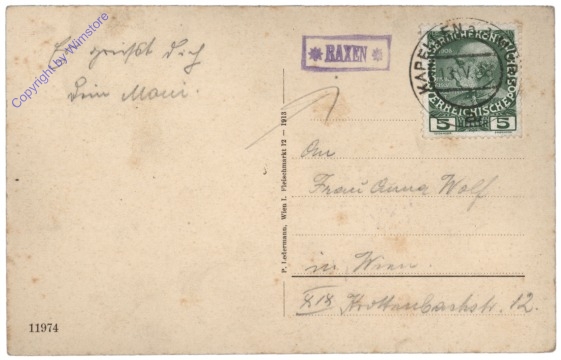 Es grüßt dich
Dein Mann.
Copyright by Wimstore
✻ RAXEN ✻
KAPELLEN
5 5
P. Ledermann, Wien I. Fleischmarkt 12 — 1913
An
Frau Anna Wolf
in Wien
XIX Krottenbachstr. 12.
11974